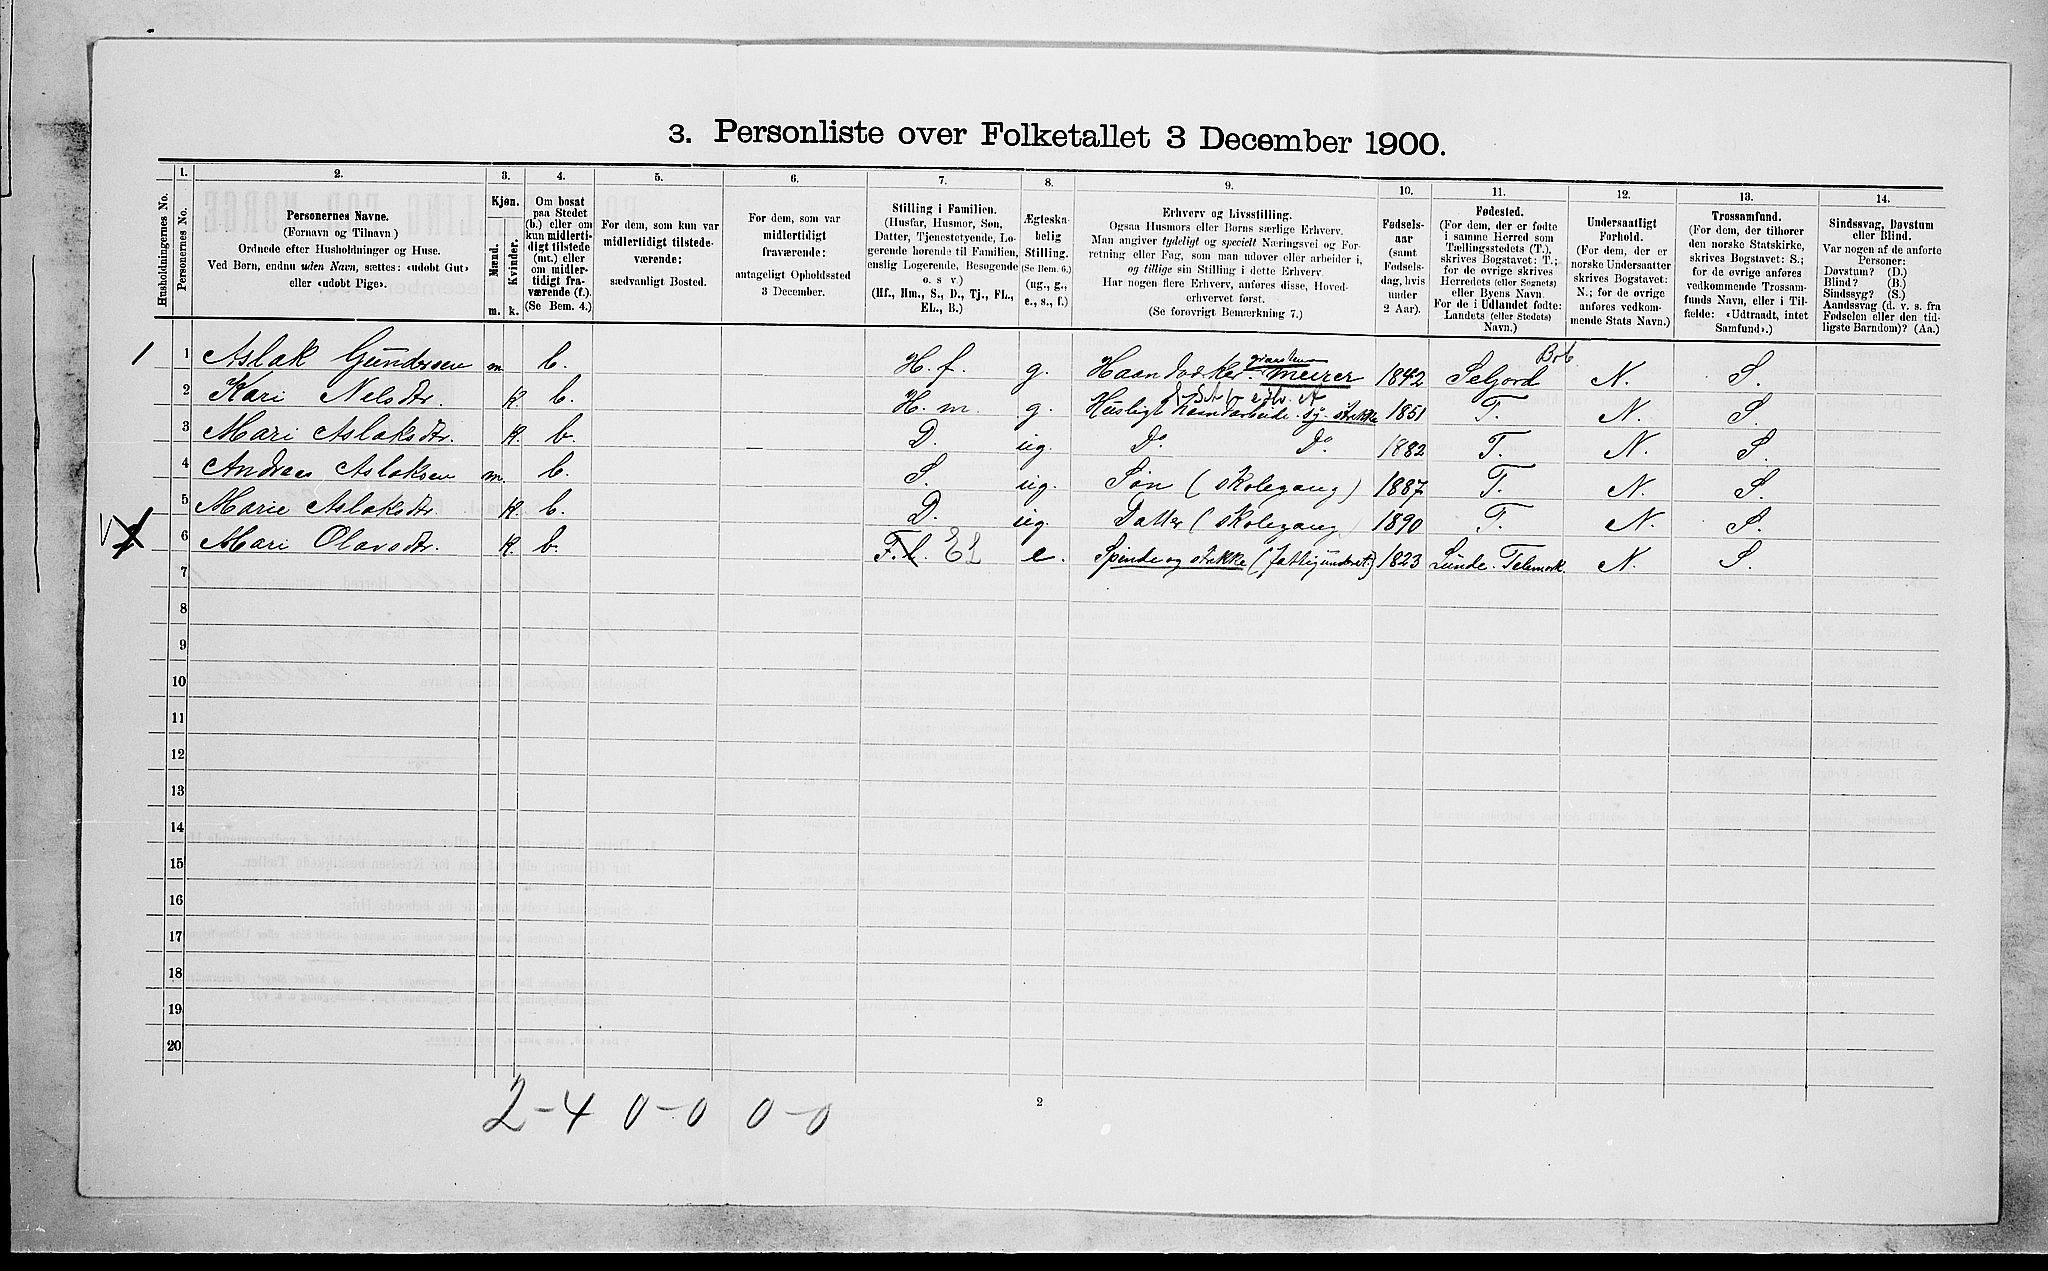 3. Personliste over Folketallet 3 December 1900.
Husholdningernes No.
1.
Personernes No.
2.
Personernes Navne.
(Fornavn og Tilnavn)
Ordnede efter Husholdninger og Huse.
Ved Børn, endnu uden Navn, sættes: «udøbt Gut»
eller «udøbt Pige».
3.
Kjøn.
Mænd.
Kvinder.
m. k.
4.
Om bosat
paa Stedet
(b.) eller om
kun midlerti-
digt tilstede
(mt.) eller
om midler-
tidigt fra-
værende (f.).
(Se Bem. 4.)
5.
For dem, som kun var
midlertidigt tilstede-
værende:
sædvanligt Bosted.
6.
For dem, som var
midlertidigt
fraværende:
antageligt Opholdssted
3 December.
7.
Stilling i Familien.
(Husfar, Husmor, Søn,
Datter, Tjenestetyende, Lo-
gerende hørende til Familien,
enslig Logerende, Besøgende
o. s v.)
(Hf., Hm., S., D., Tj., FL.,
EL., B.)
8.
Ægteska-
belig
Stilling.
(Se Bem. 6.)
(ug., g.,
e., s., f.)
9.
Erhverv og Livsstilling.
Ogsaa Husmors eller Børns særlige Erhverv.
Man angiver tydeligt og specielt Næringsvei og For-
retning eller Fag, som man udøver eller arbeider i,
og tillige sin Stilling i dette Erhverv.
Har nogen flere Erhverv, anføres disse, Hoved-
erhvervet først.
(Se forøvrigt Bemærkning 7.)
10.
Fødsels-
aar
(samt
Fødsels-
dag, hvis
under
2 Aar).
11.
Fødested.
(For dem, der er fødte
i samme Herred som
Tællingsstedets (T.),
skrives Bogstavet: T.;
for de øvrige skrives
Herredets (eller Sognets)
eller Byens Navn.
For de i Udlandet fødte:
Landets (eller Stedets)
Navn.)
12.
Undersaatligt
Forhold.
(For dem, der er
norske Undersaatter
skrives Bogstavet:
N.; for de øvrige
anføres vedkom-
mende Stats Navn.)
13.
Trossamfund.
(For dem, der tilhører
den norske Statskirke,
skrives Bogstavet: S.;
for de øvrige anføres
vedkommende Trossam-
funds Navn, eller i Til-
fælde: «Udtraadt, intet
Samfund».)
14.
Sindssvag, Døvstum
eller Blind.
Var nogen af de anførte
Personer:
Døvstum? (D.)
Blind? (B.)
Sindssyg? (S.)
Aandssvag (d. v. s. fra
Fødselen eller den tid-
ligste Barndom)? (Aa.)
1 1 Aslak Gundersen m. b. H. f. g. Haandværker. graasten mürer 1842 Seljord N. S.
2 Kari Nelsdtr. k. b. H. m. g. Husligt haandarbeide. sy. strikke 1851 T. N. S.
3 Mari Aslaksdtr. k. b. D. ug. Do Do 1882 T. N. S.
4 Andreas Aslaksen m. b. S. ug. Søn (skolegang) 1887 T. N. S.
5 Marie Aslaksdtr. k. b. D. ug. Datter (skolegang) 1890 T. N. S.
6 Mari Olavsdtr. k. b. F. L. EL e. Spinde og strikke (fattigunderst.) 1823 Lunde. Telemark. N. S.
7
8
9
10
11
12
13
14
15
16
17
18
19
20
2-4 0-0 0-0
2